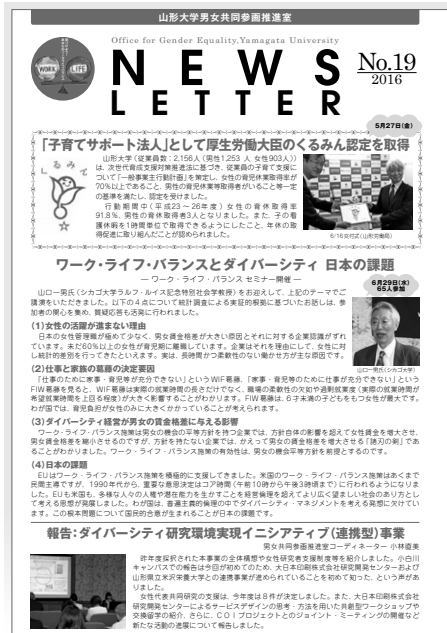 山形大学男女共同参画推進室
Office for Gender Equality,Yamagata University
WORK
LIFE
NEWS
LETTER
No.19
2016
5月27日(金)
「子育てサポート法人」として厚生労働大臣のくるみん認定を取得
山形大学(従業員数:2,156人(男性1,253 人 女性903人))
は、次世代育成支援対策推進法に基づき、従業員の子育て支援に
ついて「一般事業主行動計画」を策定し、女性の育児休業取得率が
70%以上であること、男性の育児休業等取得者がいること等一定
の基準を満たし、認定を受けました。
行動期間中(平成23~26年度)女性の育休取得率
91.8%、男性の育休取得者3人となりました。また、子の看
護休暇を1時間単位で取得できるようにしたこと、年休の取
得促進に取り組んだことが認められました。
くるみん
6/16交付式(山形労働局)
ワーク・ライフ・バランスとダイバーシティ 日本の課題
― ワーク・ライフ・バランス セミナー開催 ―
6月29日(水)
65人参加
山口一男氏(シカゴ大学ラルフ・ルイス記念特別社会学教授)をお迎えして、上記のテーマでご
講演をいただきました。以下の4点について統計調査による実証的根拠に基づいたお話しは、参
加者の関心を集め、質疑応答も活発に行われました。
(1)女性の活躍が進まない理由
日本の女性管理職が極めて少なく、男女賃金格差が大きい原因とそれに対する企業認識がずれ
ています。未だ60%以上の女性が育児期に離職しています。企業はそれを理由にして、女性に対
し統計的差別を行ってきたといえます。実は、長時間かつ柔軟性のない働かせ方が主な原因です。
(2)仕事と家族の葛藤の決定要因
「仕事のために家事・育児等が充分できない」というWIF葛藤、「家事・育児等のために仕事が充分できない」という
FIW葛藤を見ると、WIF葛藤は実際の就業時間の長さだけでなく、職場の柔軟性の欠如や過剰就業度(実際の就業時間が
希望就業時間を上回る程度)が大きく影響することがわかります。FIW葛藤は、6才未満の子どもをもつ女性が最大です。
わが国では、育児負担が女性のみに大きくかかっていることが考えられます。
山口一男氏(シカゴ大学)
(3)ダイバーシティ経営が男女の賃金格差に与える影響
ワーク・ライフ・バランス施策は男女の機会の平等方針を持つ企業では、方針自体の影響を超えて女性賃金を増大させ、
男女賃金格差を縮小させるのですが、方針を持たない企業では、かえって男女の賃金格差を増大させる「諸刃の剣」であ
ることがわかりました。ワーク・ライフ・バランス施策の有効性は、男女の機会平等方針を前提とするのです。
(4)日本の課題
EUはワーク・ライフ・バランス施策を積極的に支援してきました。米国のワーク・ライフ・バランス施策はあくまで
民間主導ですが、1990年代から、重要な意思決定はコアタイム(午前10時から午後3時頃まで)に行われるようになりま
した。EUも米国も、多様な人々の人権や潜在能力を生かすことを経営倫理を超えてより広く望ましい社会のあり方とし
て考える思想が発展しました。わが国は、普遍主義的倫理の中でダイバーシティ・マネジメントを考える発想に欠けてい
ます。この根本問題について国民的合意が生まれることが日本の課題です。
報告:ダイバーシティ研究環境実現イニシアティブ(連携型)事業
男女共同参画推進室コーディネーター 小林直美
昨年度採択された本事業の全体構想や女性研究者支援制度等を紹介しました。小白川
キャンパスでの報告は今回が初めてのため、大日本印刷株式会社研究開発センターおよび
山形県立米沢栄養大学との連携事業が進められていることを初めて知った、という声があ
りました。
女性代表共同研究の支援は、今年度は8件が決定しました。また、大日本印刷株式会社
研究開発センターによるサービスデザインの思考・方法を用いた共創型ワークショップや
交換留学の紹介、さらに、COIプロジェクトとのジョイント・ミーティングの開催など
新たな活動の進展について報告しました。